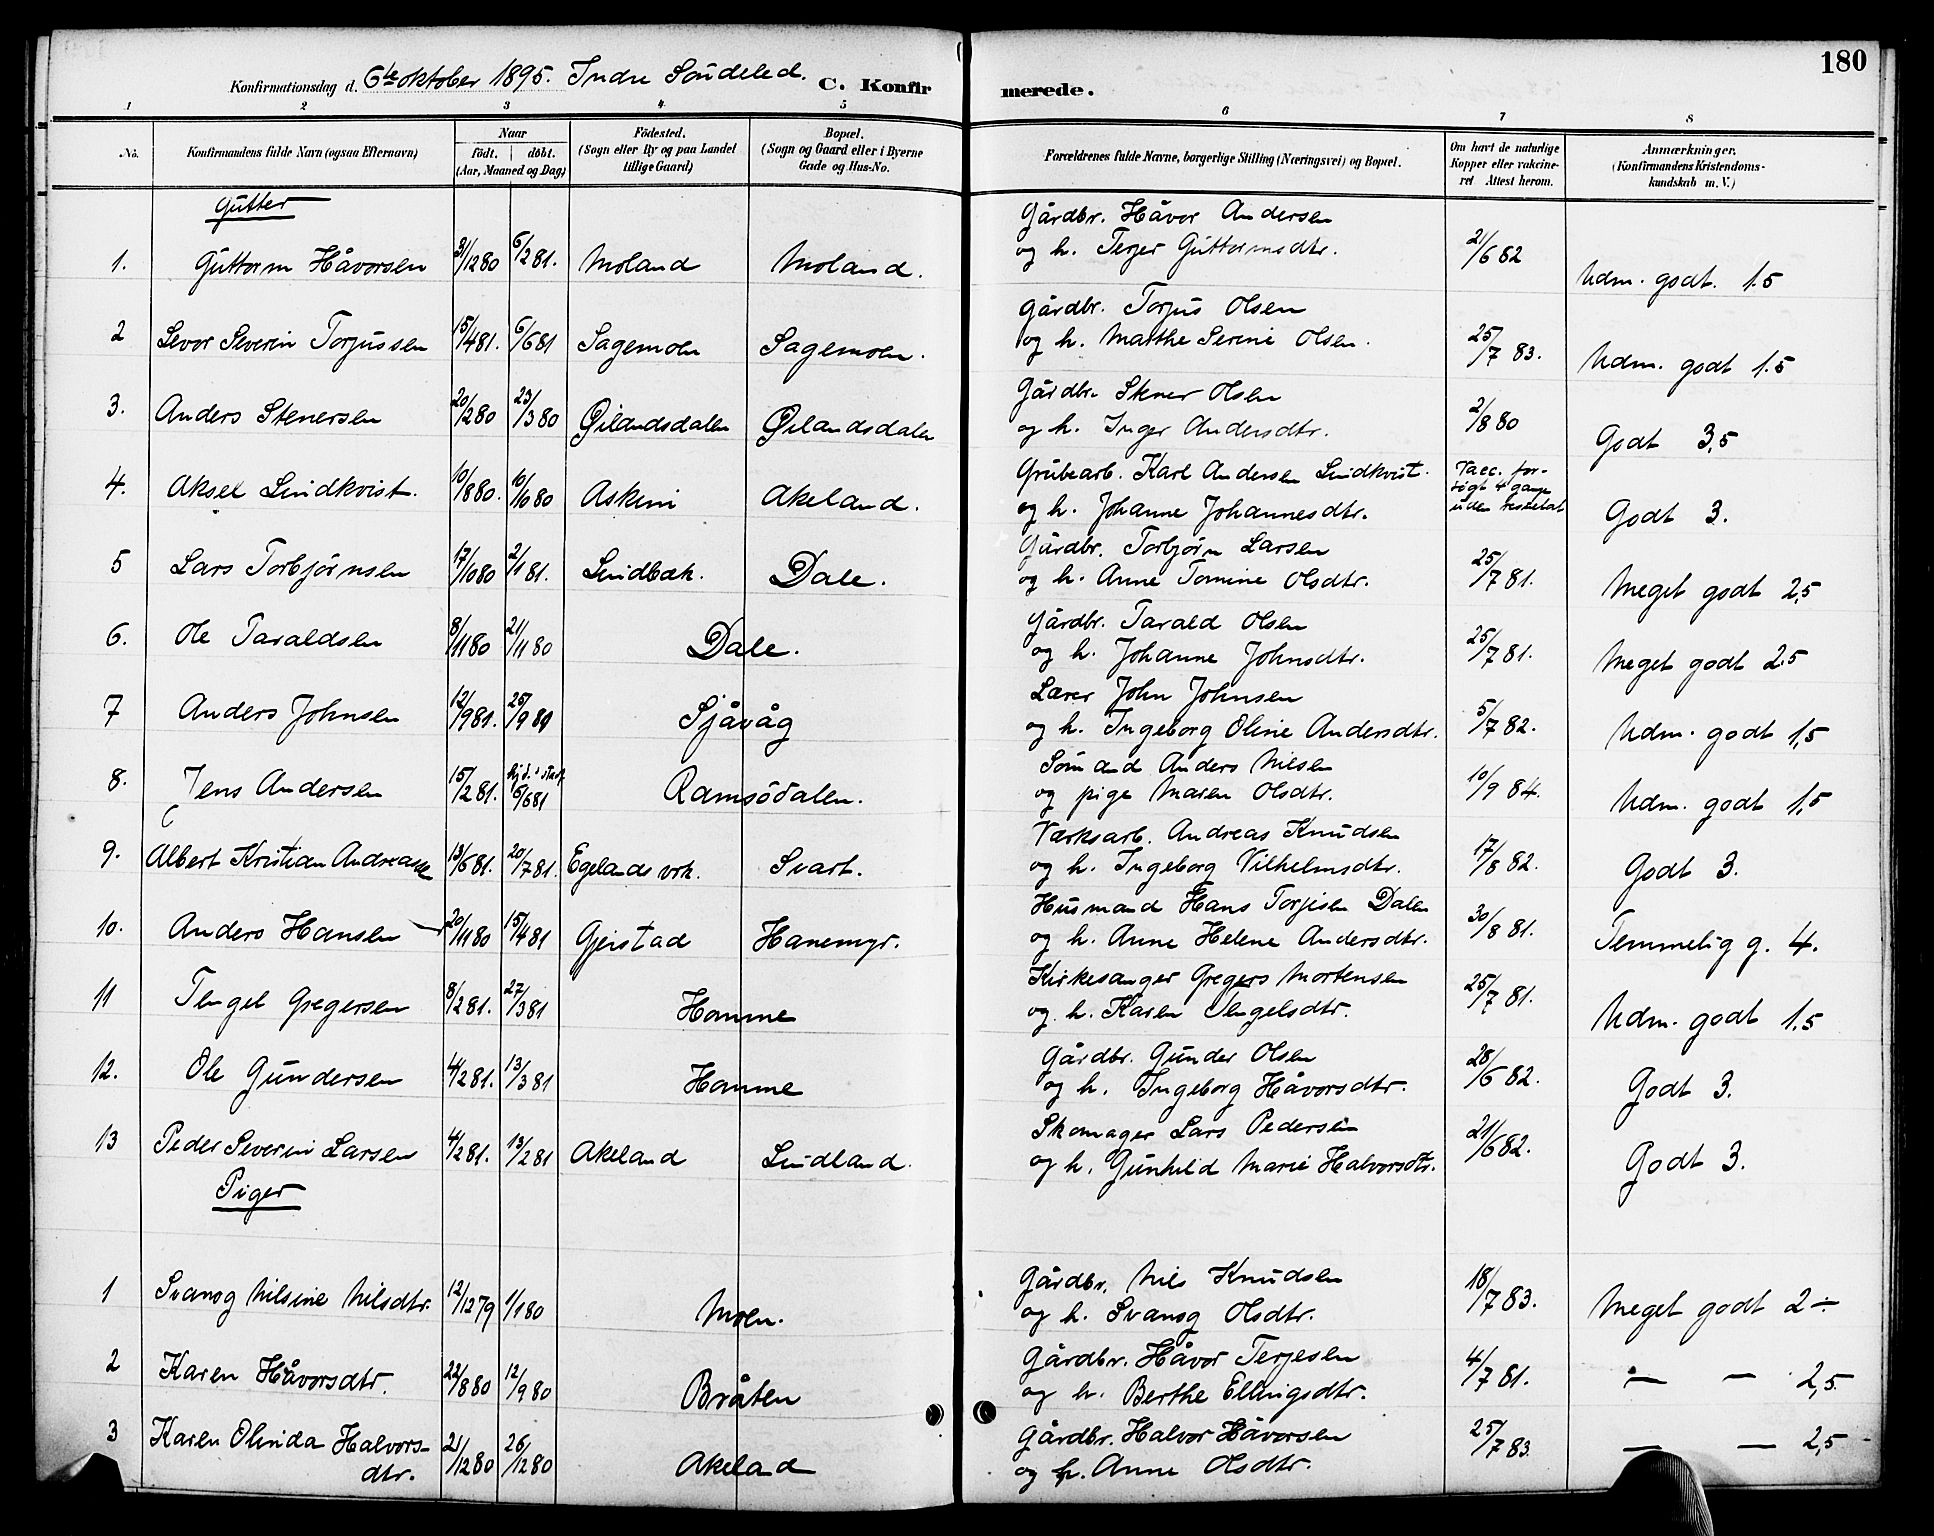 180
Konfirmationsdag d. 6te oktober 1895. Indre Söndeled. C. Konfirmerede.
1 2 3 4 5 6 7 8
No. Konfirmandens fulde Navn (ogsaa Efternavn) Naar födt. döbt. (Aar, Maaned og Dag) Födested. (Sogn eller By og paa Landet tillige Gaard) Bopæl. (Sogn og Gaard eller i Byerne Gade og Hus-No. Forældrenes fulde Navne, borgerlige Stilling (Næringsvei) og Bopæl. Om havt de naturlige Kopper eller vakcineret Attest herom. Anmærkninger. (Konfirmandens Kristendomskundskab m. V.)
Gutter
1. Guttorm Håvorsen 31/12 80 6/2 81. Moland Moland. Gårdbr. Håvor Andersen
og h. Terjer Guttormsdtr. 21/6 82 Udm. godt. 1.5
2 Levor Severin Torjussen 15/4 81. 6/6 81 Sagemoen Sagemoen. Gårdbr. Torjus Olsen
og h. Marthe Serine Olsen. 25/7 83. Udm. godt 1.5
3. Anders Stenersen 20/2 80 23/3 80 Øilandsdalen Øilandsdalen Gårdbr. Stener Olsen
og h. Inger Andersdtr. 2/8 80 Godt 3,5
4. Aksel Lindkvist. 10/8 80. 10/10 80 Askim Akeland. Grubearb. Karl Andersen Lindkvist.
og h. Johanne Johannesdtr. Vacc. forsøgt 4 gange uden resultat Godt 3.
5 Lars Torbjørnsen 17/10 80 2/1 81. Lindbæk. Dale. Gårdbr. Torbjørn Larsen
og h. Anne Tomine Olsdtr. 25/7 81. Meget godt 2,5
6. Ole Taraldsen 8/11 80 21/11 80 Dale. Gårdbr. Tarald Olsen
og h. Johanne Johnsdtr. 25/7 81. Meget godt 2.5
7 Anders Johnsen 12/9 81. 25/9 81 Sjåvåg Lærer John Johnsen
og h. Ingeborg Oline Andersdtr. 5/7 82. Udm. godt 1,5
8. Jens Andersen 15/2 81. 6/6 81 Ramsödalen. Sömand Anders Nilsen
og pige Maren Olsdtr. 10/9 84. Udm. godt 1,5
9. Albert Kristian Andreassen 13/6 81. 20/7 81. Egelands vrk. Svart. Værksarb. Andreas Knudsen
og h. Ingeborg Vilhelmsdtr. 17/8 82. Godt 3.
10. Anders Hansen 20/11 80 15/4 81 Gjerstad Hanemyr. Husmand Hans Torjisen Dalen
og h. Anne Helene Andersdtr. 30/8 81. Temmelig g. 4.
11 Tengel Gregersen 8/2 81. 27/3 81 Homme Kirkesanger Gregers Mortensen
og h. Karen Tengelsdtr. 25/7 81. Udm. godt 1.5
12. Ole Gundersen 4/2 81. 13/3 81 Homme Gårdbr. Gunder Olsen
og h. Ingeborg Håvorsdtr. 28/6 82. Godt 3.
13 Peder Severin Larsen 4/2 81. 13/2 81 Akeland Lindland. Skomager Lars Pedersen
og h. Gunhild Marie Halvorsdtr. 21/6 82. Godt 3.
Piger
1 Svanog Nilsine Nilsdtr. 12/12 79 1/1 80 Moen. Gårdbr. Nils Knudsen
og h. Svanog Olsdtr. 18/7 83. Meget godt 2 ÷
2 Karen Håvorsdtr. 22/8 80 12/9 80 Bråten Gårdbr. Håvor Terjesen
og h. Berthe Ellingsdtr. 4/7 81. — — 2,5.
3 Karen Olinda Halvorsdtr. 21/12 80 26/12 80 Akeland Gårdbr. Halvor Håvorsen
og h. Anne Olsdtr. 25/7 83. — — 2,5